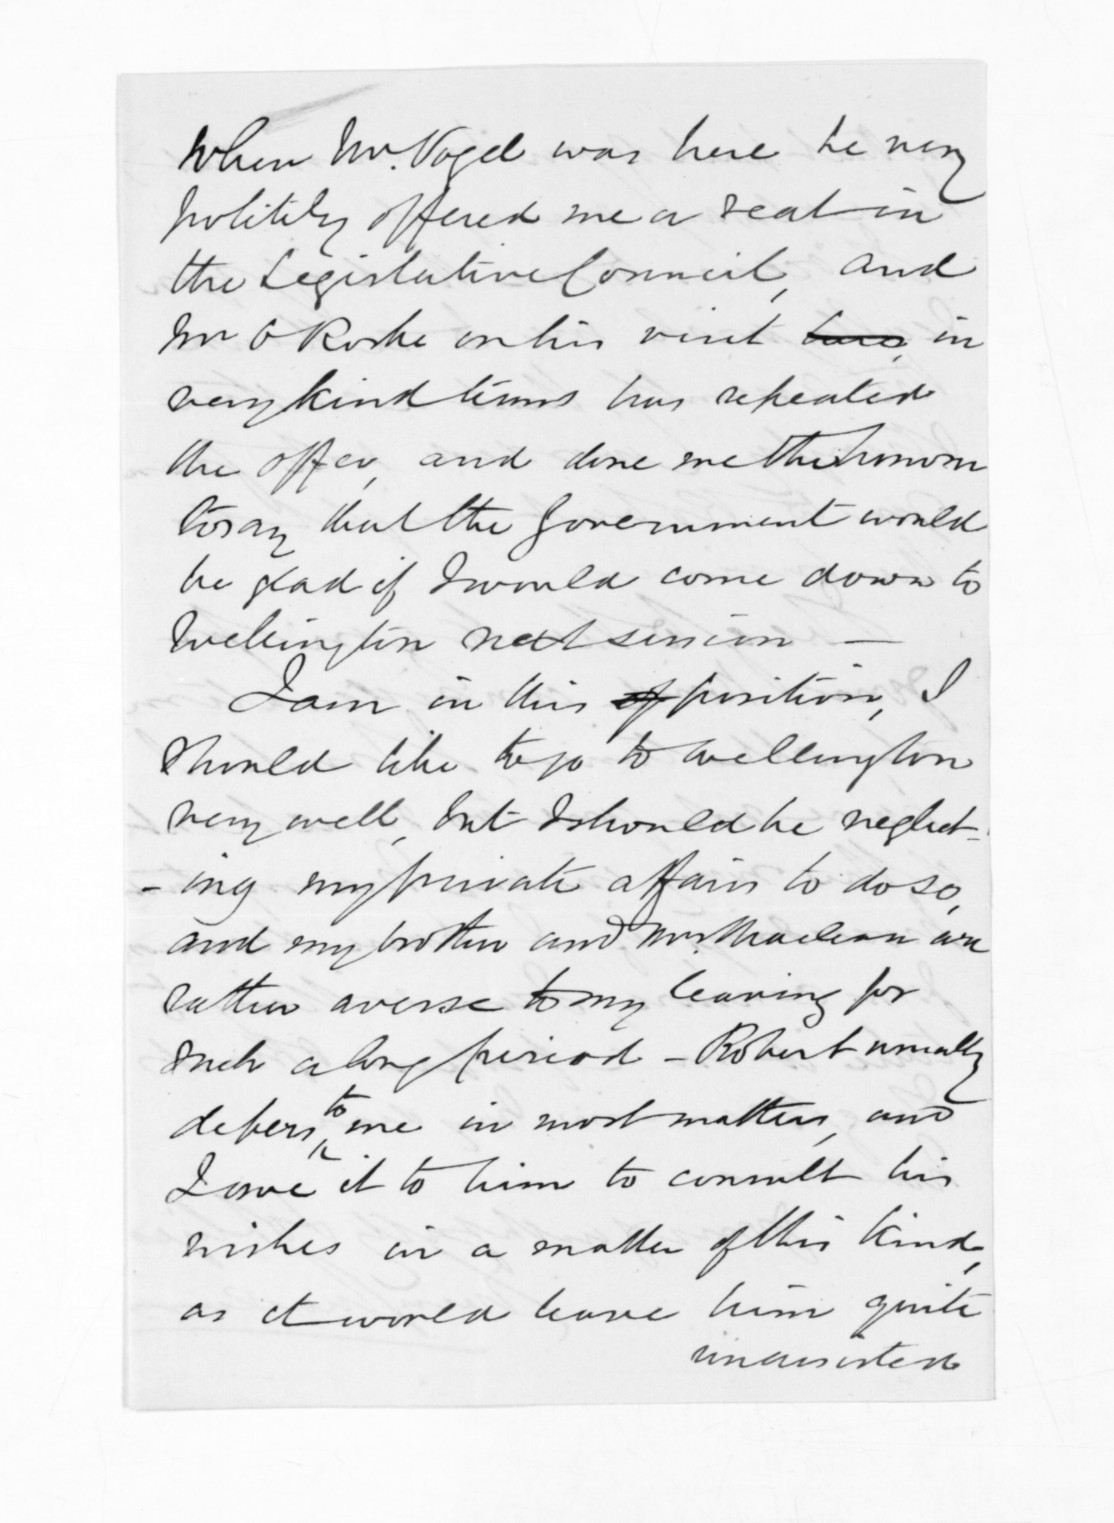 When Mr. Vogel was here he very
politely offered me a seat in
the Legislative Council, and
Mr O Rorke on his visit here, in
very kind terms has repeated
the offer, and done me the honour
to say that the Government would
be glad if I would come down to
Wellington next session —
I am in this of position, I
should like to go to Wellington
very well, but I should be neglect-
- ing my private affairs to do so,
and my brother and Mrs Maclean are
rather averse to my leaving for
such a long period – Robert usually
defers to me in most matters, and
I owe it to him to consult his
wishes in a matter of this kind,
as it would leave him quite
unassisted